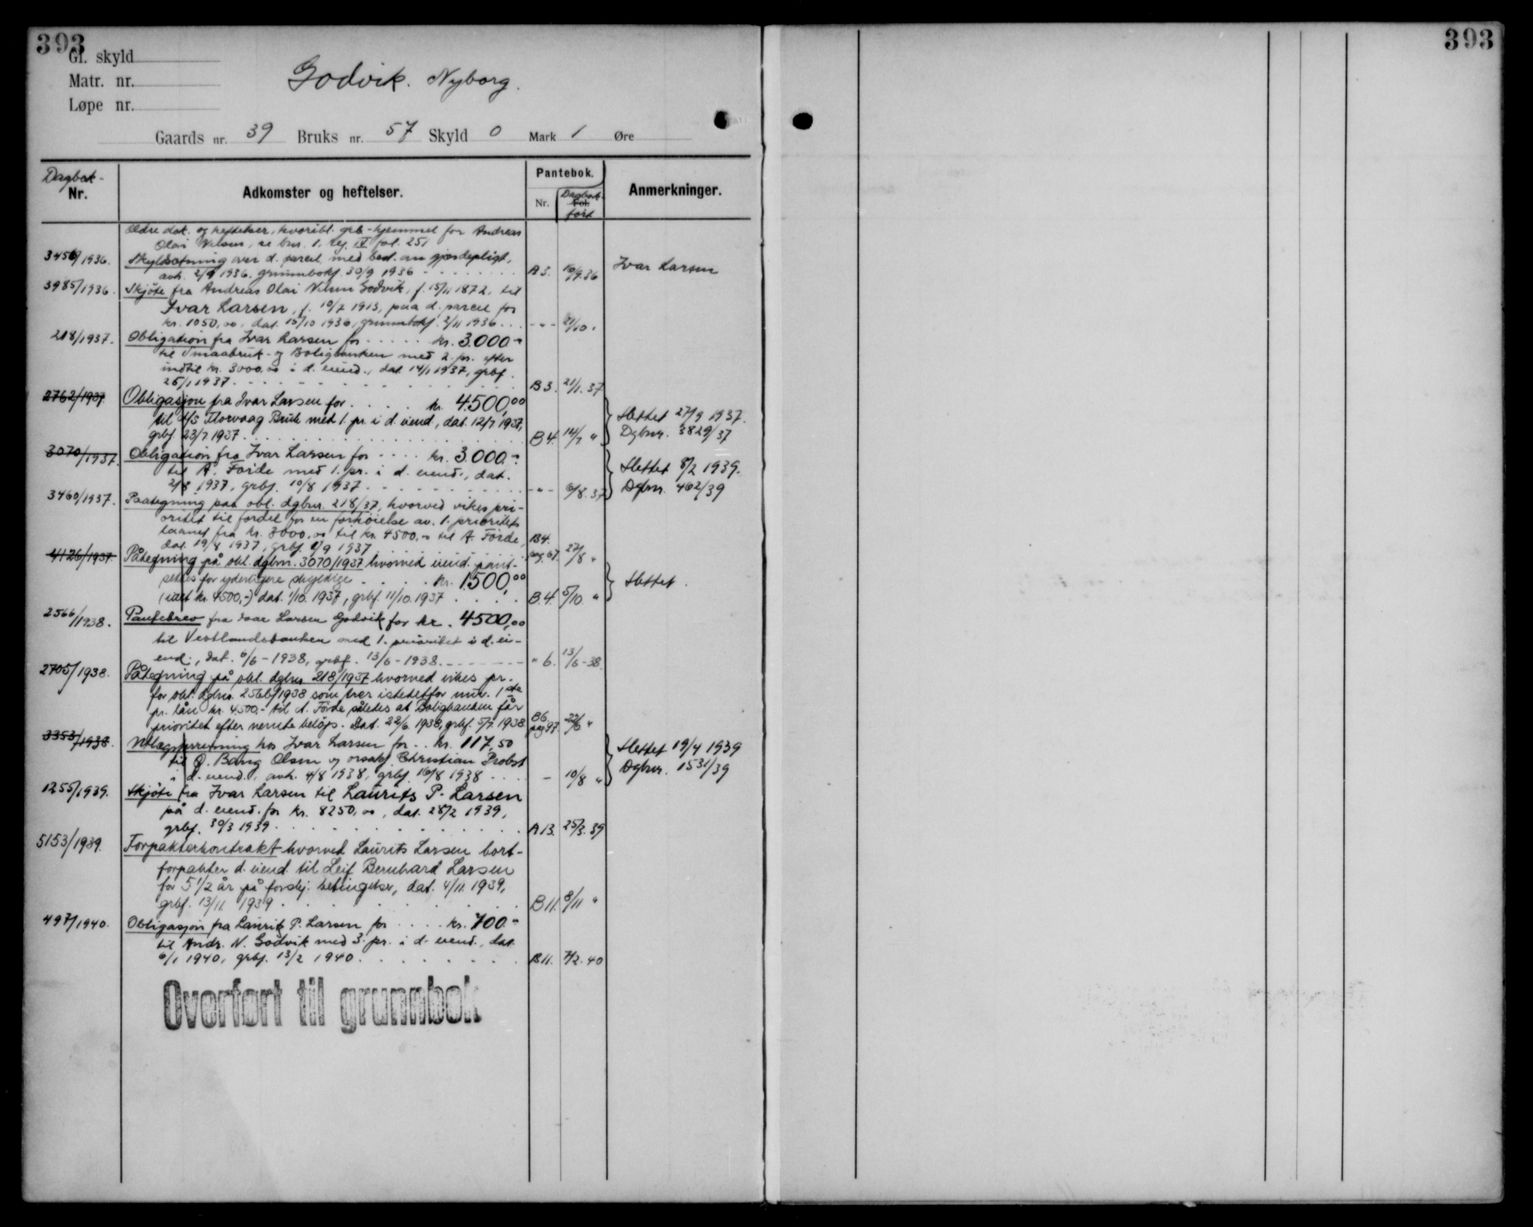 393
393
Gl. skyld
Matr. nr.
Løpe nr.
Godvik. Nyborg.
Gaards nr. 39 Bruks nr. 57 Skyld 0 Mark 1 Øre
Dagbok-
Nr.
Adkomster og heftelser.
Pantebok.
Nr.
Dagbok
Fol.
ført
Anmerkninger.
Ældre dok. og heftelser, hvoribl. grb-hjemmel for Andreas
Olai Nilsen, se bnr. 1. fol. 251
/1936. Skyldsetning over d. parcel med best. om gjerdepligt,
avh. 2/9 1936, grunnbokf. 30/9 1936 A3. 10/9.36 Ivar Larsen
3985/1936. Skjøte fra Andreas Olai Nilsen Godvik, f. 15/11 1872, til
Ivar Larsen, f. 10/7 1913, paa d. parcel for
kr. 1050,00, dat. 15/10 1936, grunnbokf. 2/11 1936 - " - /10.
218/1937. Obligation fra Ivar Larsen for kr. 3.000 -
til Smaabruk- og Boligbanken med 2. pr. efter
indtil kr. 3000,00 i d. eiend., dat. 14/1 1937, grbf.
25/1 1937 B3. 21/1.37
2762/1937 Obligasjon fra Ivar Larsen for kr. 4500,00
til A/S Florvaag Bruk med 1. pr. i d. eiend, dat. 12/7 1937,
grbf 23/7 1937 B4. 14/7 "
Slettet 27/9 1937.
Dgbnr. 3829/37
3070/1937. Obligation fra Ivar Larsen for kr. 3000.-
til A. Førde med 1. pr. i d. eiend., dat.
2/8 1937, grbf. 10/8 1937 - " - 6/8.37
Slettet 8/2 1939.
Dgbnr. 462/39
3460/1937. Paategning paa obl. dgbnr. 218/37, hvorved vikes pri-
oritet til fordel for en forhøielse av 1. prioritets
laanet fra kr. 3000,00 til kr. 4500,- til A. Førde,
dat. 19/8 1937, grbf. 1/9 1937 B4. 27/8 "
4126/1937 Påtegning på obl. dgbnr. 3070/1937 hvorved eiend. pant-
settes for yderligere skyldige kr. 1500,00
(ialt kr. 4500,-) dat. 1/10. 1937, grbf. 11/10. 1937 B.4. 5/10 "
Slettet.
2566/1938. Pantebrev fra Ivar Larsen Godvik for kr. 4500,00
til Vestlandsbanken med 1. prioritet i d. ei-
end., dat. 6/6 - 1938, grbf. 13/6 - 1938. " 6. 13/6-38
2705/1938. Påtegning på obl. dgbnr. 218/1937 hvorved vikes pr.
for obl. dgbnr. 2566/1938 som trer istedetfor nuv. 1ste
pr. lån kr. 4500.- til A. Førde således at Boligbanken får
prioritet efter nevnte beløp. Dat. 22/6 1938, grbf. 5/7 1938 B6. "
3353/1938. Utlegsforretning hos Ivar Larsen for kr. 117,50
til O. Bang Olsen og orsakf. Christian Probst
i d. eiend., avh. 4/8 1938, grbf. 16/8 1938 - 10/8 "
Slettet 19/4 1939
Dgbnr. 1531/39
1255/1939. Skjøte fra Ivar Larsen til Laurits P. Larsen
på d. eiend. for kr. 8250,00, dat. 28/2 1939,
grbf. 30/3 1939 A13. 25/3.39
5153/1939. Forpakterkontrakt hvorved Laurits Larsen bort-
forpakter d. eiend til Leif Bernhard Larsen
for 5 1/2 år på forskj. betingelser, dat. 4/11 1939,
grbf. 13/11 1939 B11. 8/11 "
497/1940. Obligasjon fra Laurits P. Larsen for kr. 700 -
til Andr. N. Godvik med 3. pr. i d. eiend., dat.
6/1 1940, grbf. 13/2 1940. B11. 7/2.40
Overført til grunnbok